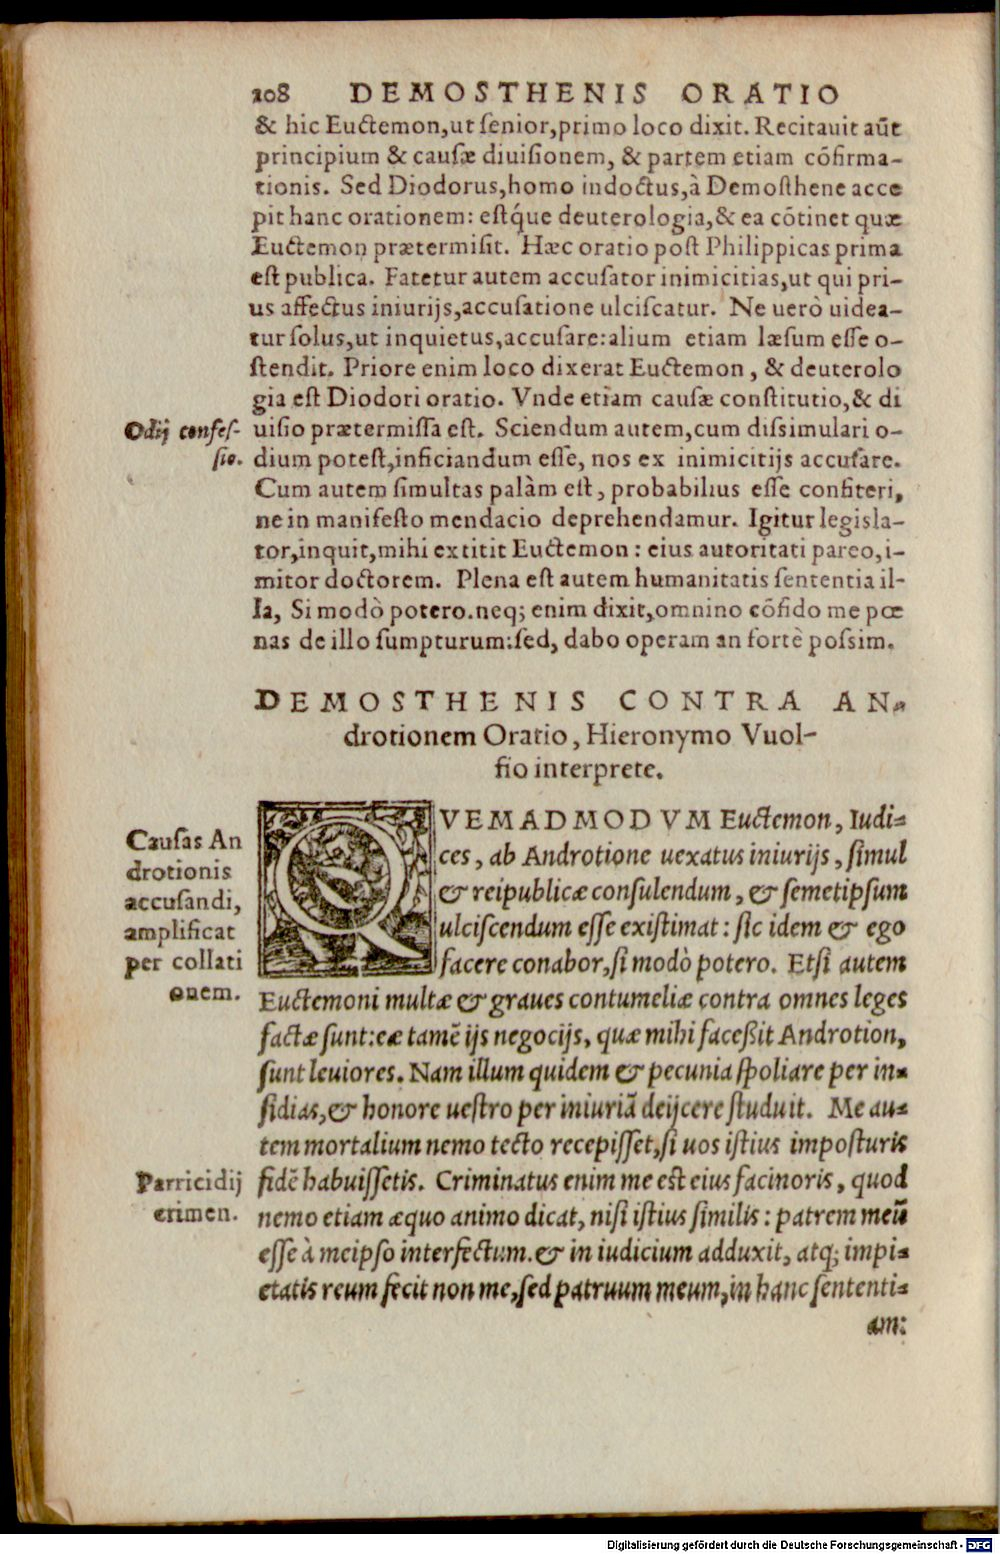 208 DEMOSTHENIS ORATIO
& hic Euctemon,ut ſenior,primo loco dixit. Recitauit aūt
principium & cauſæ diuiſionem, & partem etiam cōfirma-
tionis. Sed Diodorus,homo indoctus,à Demoſthene acce
pit hanc orationem: eſtq́ue deuterologia,& ea cōtinet quæ
Euctemon prætermiſit. Hæc oratio poſt Philippicas prima
eſt publica. Fatetur autem accuſator inimicitias,ut qui pri-
us affectus iniurijs,accuſatione ulciſcatur. Ne uerò uidea-
tur ſolus,ut inquietus,accuſare:alium etiam læſum eſſe o-
ſtendit. Priore enim loco dixerat Euctemon, & deuterolo
gia eſt Diodori oratio. Vnde etiam cauſæ conſtitutio,& di
Odij confeſ-
ſio.
uiſio prætermiſſa eſt. Sciendum autem,cum diſsimulari o-
dium poteſt,inficiandum eſſe, nos ex inimicitijs accuſare.
Cum autem ſimultas palàm eſt, probabilius eſſe confiteri,
ne in manifeſto mendacio deprehendamur. Igitur legisla-
tor,inquit,mihi extitit Euctemon: eius autoritati pareo,i-
mitor doctorem. Plena eſt autem humanitatis ſententia il-
la, Si modò potero.neq; enim dixit,omnino cōfido me pœ
nas de illo ſumpturum:ſed, dabo operam an fortè poſsim.
DEMOSTHENIS CONTRA AN-
drotionem Oratio, Hieronymo Vuol-
fio interprete.
Cauſas An
drotionis
accuſandi,
amplificat
per collati
onem.
QVEMADMODVM Euctemon, Iudi-
ces, ab Androtione uexatus iniurijs, ſimul
& reipublicæ conſulendum, & ſemetipſum
ulciſcendum eſſe exiſtimat: ſic idem & ego
facere conabor,ſi modò potero. Etſi autem
Euctemoni multæ & graues contumeliæ contra omnes leges
factæ ſunt:eæ tamē ijs negocijs, quæ mihi faceßit Androtion,
ſunt leuiores. Nam illum quidem & pecunia ſpoliare per in-
ſidias,& honore ueſtro per iniuriā deijcere ſtuduit. Me au-
tem mortalium nemo tecto recepiſſet,ſi uos iſtius impoſturis
Parricidij
crimen.
fidē habuiſſetis. Criminatus enim me eſt eius facinoris, quod
nemo etiam æquo animo dicat, niſi iſtius ſimilis: patrem meū
eſſe à meipſo interfectum.& in iudicium adduxit, atq; impi-
etatis reum fecit non me,ſed patruum meum,in hanc ſententi-
am:
Digitalisierung gefördert durch die Deutsche Forschungsgemeinschaft - DFG